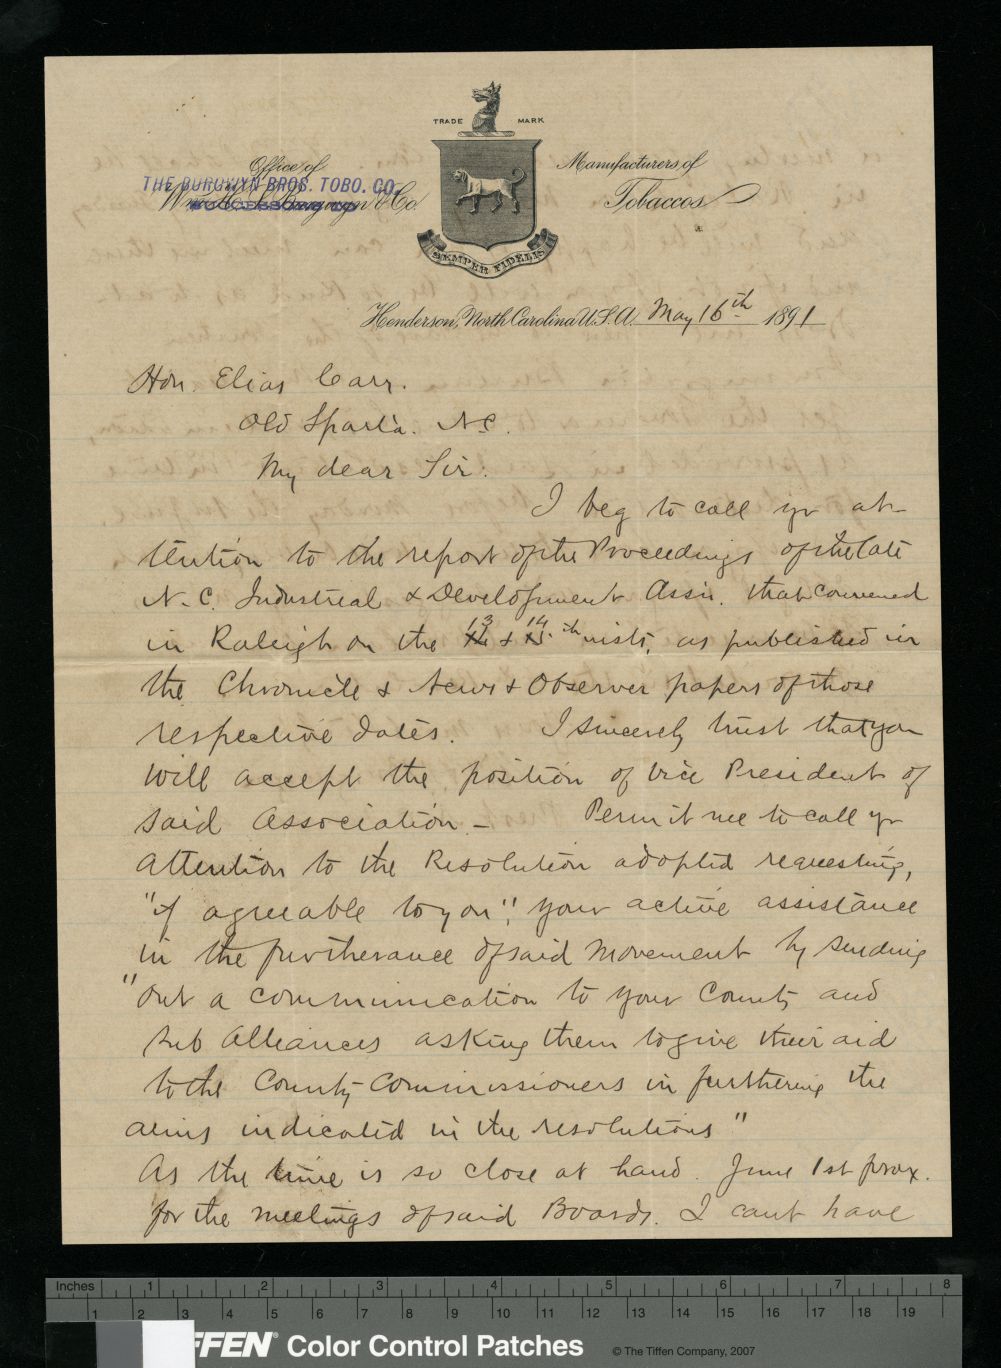 TRADE MARK
Office of
THE BURGWYN BROS. TOBO. CO.
Wm. H. S. Burgwyn & Co.
SUCCESSORS TO
Manufacturers of
Tobaccos
SEMPER FIDELIS
Henderson, North Carolina U.S.A. May 16th 1891
Hon. Elias Carr.
Old Sparta. N.C.
My dear Sir:
I beg to call yr at-
tention to the report of the Proceedings of the late
N.C. Industrial & Development Assn. that convened
in Raleigh on the 13 & 14th insts, as published in
the Chronicle & News & Observer papers of those
respective dates. I sincerely trust that you
will accept the position of Vice President of
said Association - Permit me to call yr
attention to the Resolution adopted requesting,
"if agreeable to you", your active assistance
in the furtherance of said movement by sending
"out a communication to your County and
Sub Alliances asking them to give their aid
to the County Commissioners in furthering the
aims indicated in the resolutions"
As the time is so close at hand. June 1st prox.
for the meetings of said Boards. I cant have
Inches 1 2 3 4 5 6 7 8
1 2 3 4 5 6 7 8 9 10 11 12 13 14 15 16 17 18 19
FFEN® Color Control Patches © The Tiffen Company, 2007